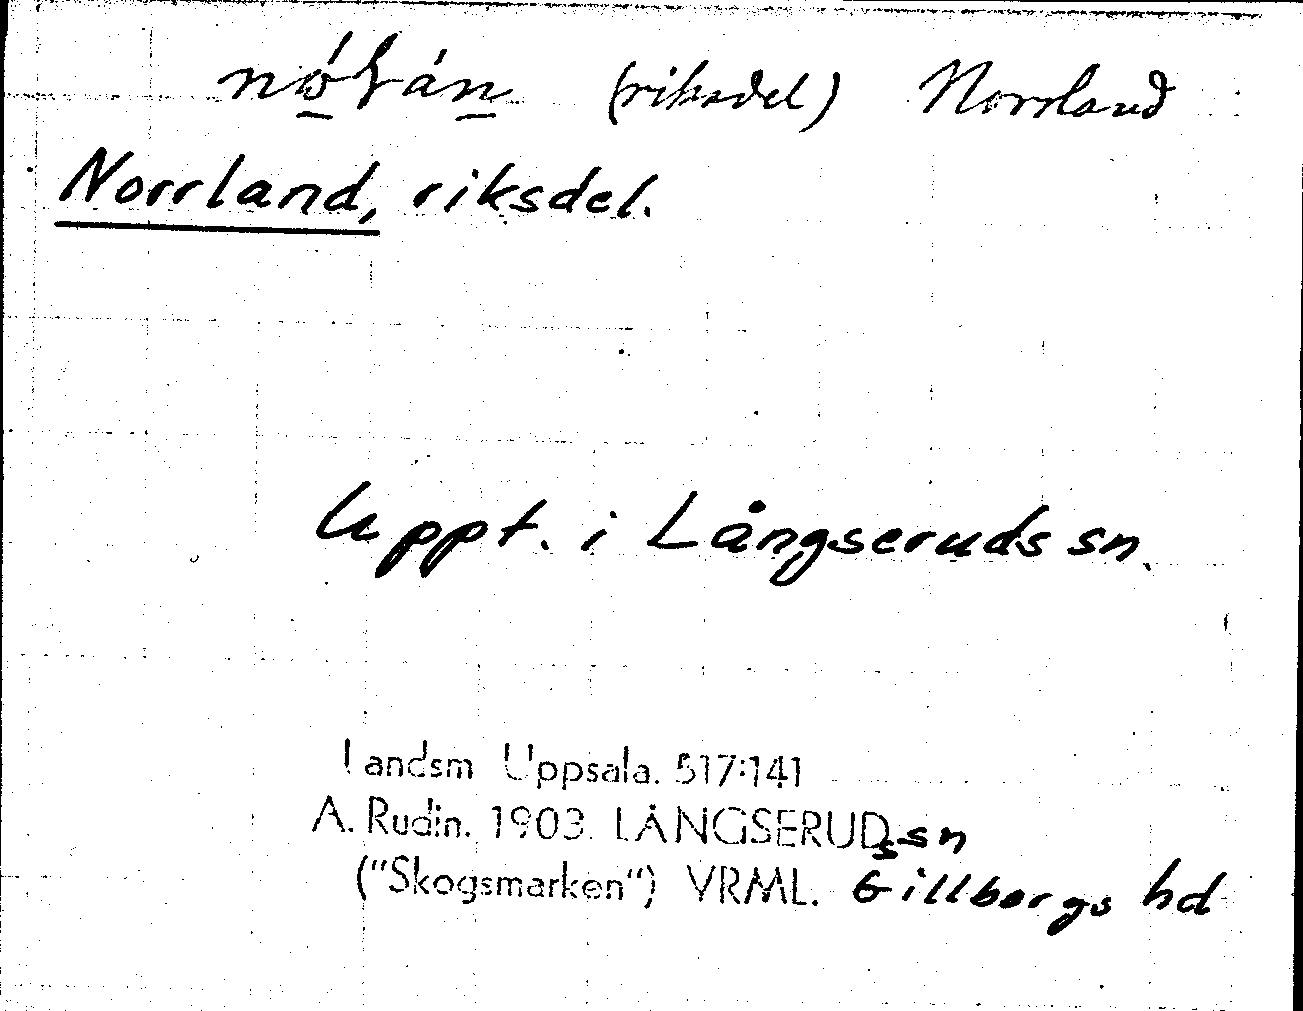 (riksdel) Norrland
Norrland, riksdel.
Uppt. i Långseruds sn.
Landsm Uppsala. 517:141
A. Rudin. 1903. LÅNGSERUDs sn
("Skogsmarken") VRML. Gillbergs hd